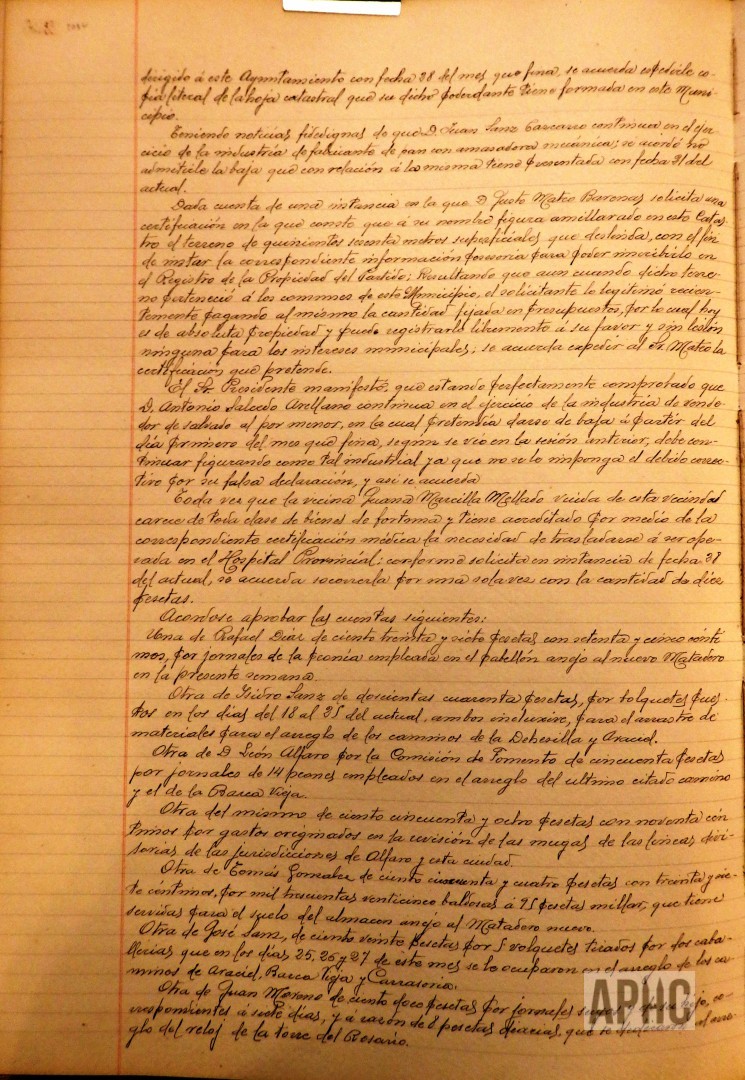 dirigido á este Ayuntamiento con fecha 28 del mes que fina, se acuerda expedirle co-
pia literal de la hoja catastral que su dicho poderdante tiene formada en este Muni-
cipio.
Teniendo noticias fidedignas de que D. Juan Sanz Cascarro continua en el ejer-
cicio de la industria de fabricante de pan con amasadora mecánica; se acordó no
admitirle la baja que con relación á la misma tiene presentada con fecha 21 del
actual.
Dada cuenta de una instancia en la que D. Justo Mateo Baronas solicita una
certificación en la que conste que á su nombre figura amillarado en este Catas-
tro el terreno de quinientos sesenta metros superficiales que deslinda, con el fin
de instar la correspondiente información posesoria para poder inscribirlo en
el Registro de la Propiedad del Partido; Resultando que aun cuando dicho terre-
no perteneció á los comunes de este Municipio, el solicitante lo legitimó recien-
temente pagando al mismo la cantidad fijada en presupuestos, por lo cual hoy
es de absoluta propiedad y puede registrarlo libremente á su favor y sin lesión
ninguna para los intereses municipales; se acuerda expedir al Sr. Mateo la
certificación que pretende.
El Sr. Presidente manifestó, que estando perfectamente comprobado que
D. Antonio Salcedo Arellano continua en el ejercicio de la industria de vende-
dor de salvado al por menor, en la cual pretendía darse de baja á partir del
día primero del mes que fina, según se vió en la sesión anterior, debe con-
tinuar figurando como tal industrial ya que no se le imponga el debido correc-
tivo por su falsa declaración, y así se acuerda
Toda vez que la vecina Juana Marcilla Mellado viuda de esta vecindad
carece de toda clase de bienes de fortuna y tiene acreditado por medio de la
correspondiente certificación médica la necesidad de trasladarse á ser ope-
rada en el Hospital Provincial; conforme solicita en instancia de fecha 28
del actual, se acuerda socorrerla por una sola vez con la cantidad de diez
pesetas.
Acordose aprobar las cuentas siguientes:
Una de Rafael Diaz de ciento treinta y siete pesetas con setenta y cinco cénti-
mos, por jornales de la peonía empleada en el pabellón anejo al nuevo Matadero
en la presente semana.
Otra de Isidro Sanz de doscientas cuarenta pesetas, por volquetes pues-
tos en los días del 18 al 25 del actual, ambos inclusive, para el arrastre de
materiales para el arreglo de los caminos de la Dehesilla y Araciel.
Otra de D. León Alfaro por la Comisión de Fomento de cincuenta pesetas
por jornales de 14 peones empleados en el arreglo del ultimo citado camino
y el de la Barca Vieja.
Otra del mismo de ciento cincuenta y ocho pesetas con noventa cén-
timos por gastos originados en la revisión de las mugas de las líneas divi-
sorias de las jurisdicciones de Alfaro y esta ciudad.
Otra de Tomás Gonzalez de ciento cincuenta y cuatro pesetas con treinta y sie-
te céntimos, por mil trescuentas venticinco baldosas á 95 pesetas millar, que tiene
servidas para el suelo del almacen anejo al Matadero nuevo.
Otra de José Sanz, de ciento veinte pesetas por 5 volquetes tirados por dos caba-
llerias que en los días 25, 26 y 27 de este mes se le ocuparon en el arreglo de los ca-
minos de Araciel, Barca Vieja y Carrasoria.
Otra de Juan Moreno de ciento doce pesetas por jornales suyos y de su hijo, co-
rrespondientes á siete días, y á razón de 8 pesetas diarias, que se dedicaron al arre-
glo del reloj de la torre del Rosario.
APHC